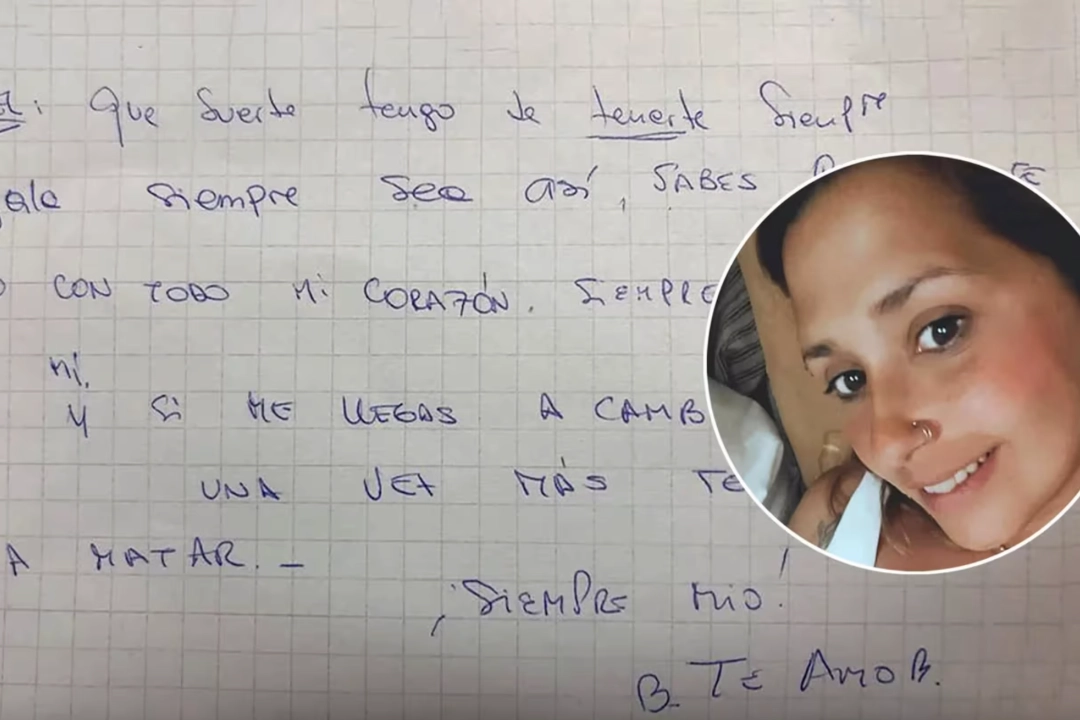 Que suerte tengo de tenerte siempre
siempre sea así, SABES
CON TODO Mi CORAZÓN. SIEMPRE
mí.
Y Si ME LLEGAS A CAMB
UNA VEZ MÁS TE
A MATAR. –
¡SIEMPRE MIO!
B. TE AMO B.